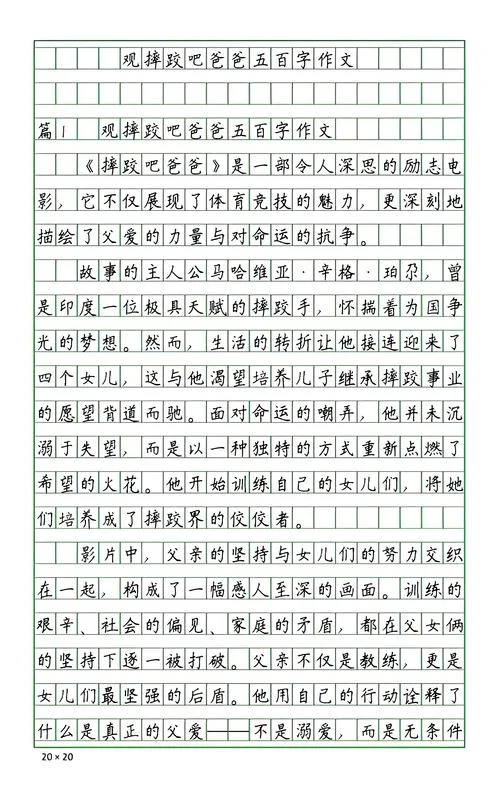 观摔跤吧爸爸五百字作文
篇1 观摔跤吧爸爸五百字作文
《摔跤吧爸爸》是一部令人深思的励志电
影，它不仅展现了体育竞技的魅力，更深刻地
描绘了父爱的力量与对命运的抗争。
故事的主人公马哈维亚·辛格·珀尕，曾
是印度一位极具天赋的摔跤手，怀揣着为国争
光的梦想。然而，生活的转折让他接连迎来了
四个女儿，这与他渴望培养儿子继承摔跤事业
的愿望背道而驰。面对命运的嘲弄，他并未沉
溺于失望，而是以一种独特的方式重新点燃了
希望的火花。他开始训练自己的女儿们，将她
们培养成了摔跤界的佼佼者。
影片中，父亲的坚持与女儿们的努力交织
在一起，构成了一幅感人至深的画面。训练的
艰辛、社会的偏见、家庭的矛盾，都在父女俩
的坚持下逐一被打破。父亲不仅是教练，更是
女儿们最坚强的后盾。他用自己的行动诠释了
什么是真正的父爱——不是溺爱，而是无条件
20×20